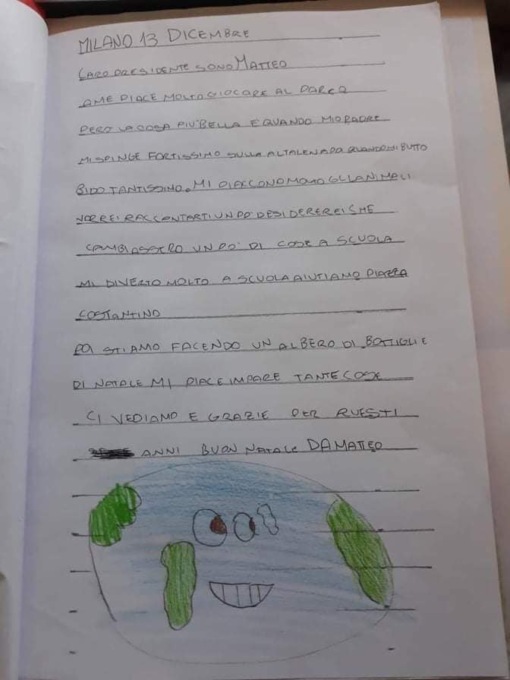 MILANO 13 DICEMBRE
CARO PRESIDENTE SONO MATTEO
AME PIACE MOLTO GIOCARE AL PARCO
PERO LA COSA PIU BELLA E QUANDO MIO PADRE
MI SPINGE FORTISSIMO SULLA ALTALENA DA QUANDO MI BUTTO
RIDO TANTISSIMO. MI PIACCONO MOLTO GLI ANIMALI
VORREI RACCONTARTI UN PO DESIDEREREI CHE
CAMBIASSERO UN PO' DI COSE A SCUOLA
MI DIVERTO MOLTO A SCUOLA AIUTIAMO PIAZZA
COSTANTINO
POI STIAMO FACENDO UN ALBERO DI BOTTIGLIE
DI NATALE MI PIACE IMPARE TANTE COSE
CI VEDIAMO E GRAZIE PER QUESTI
ANNI BUON NATALE DA MATTEO